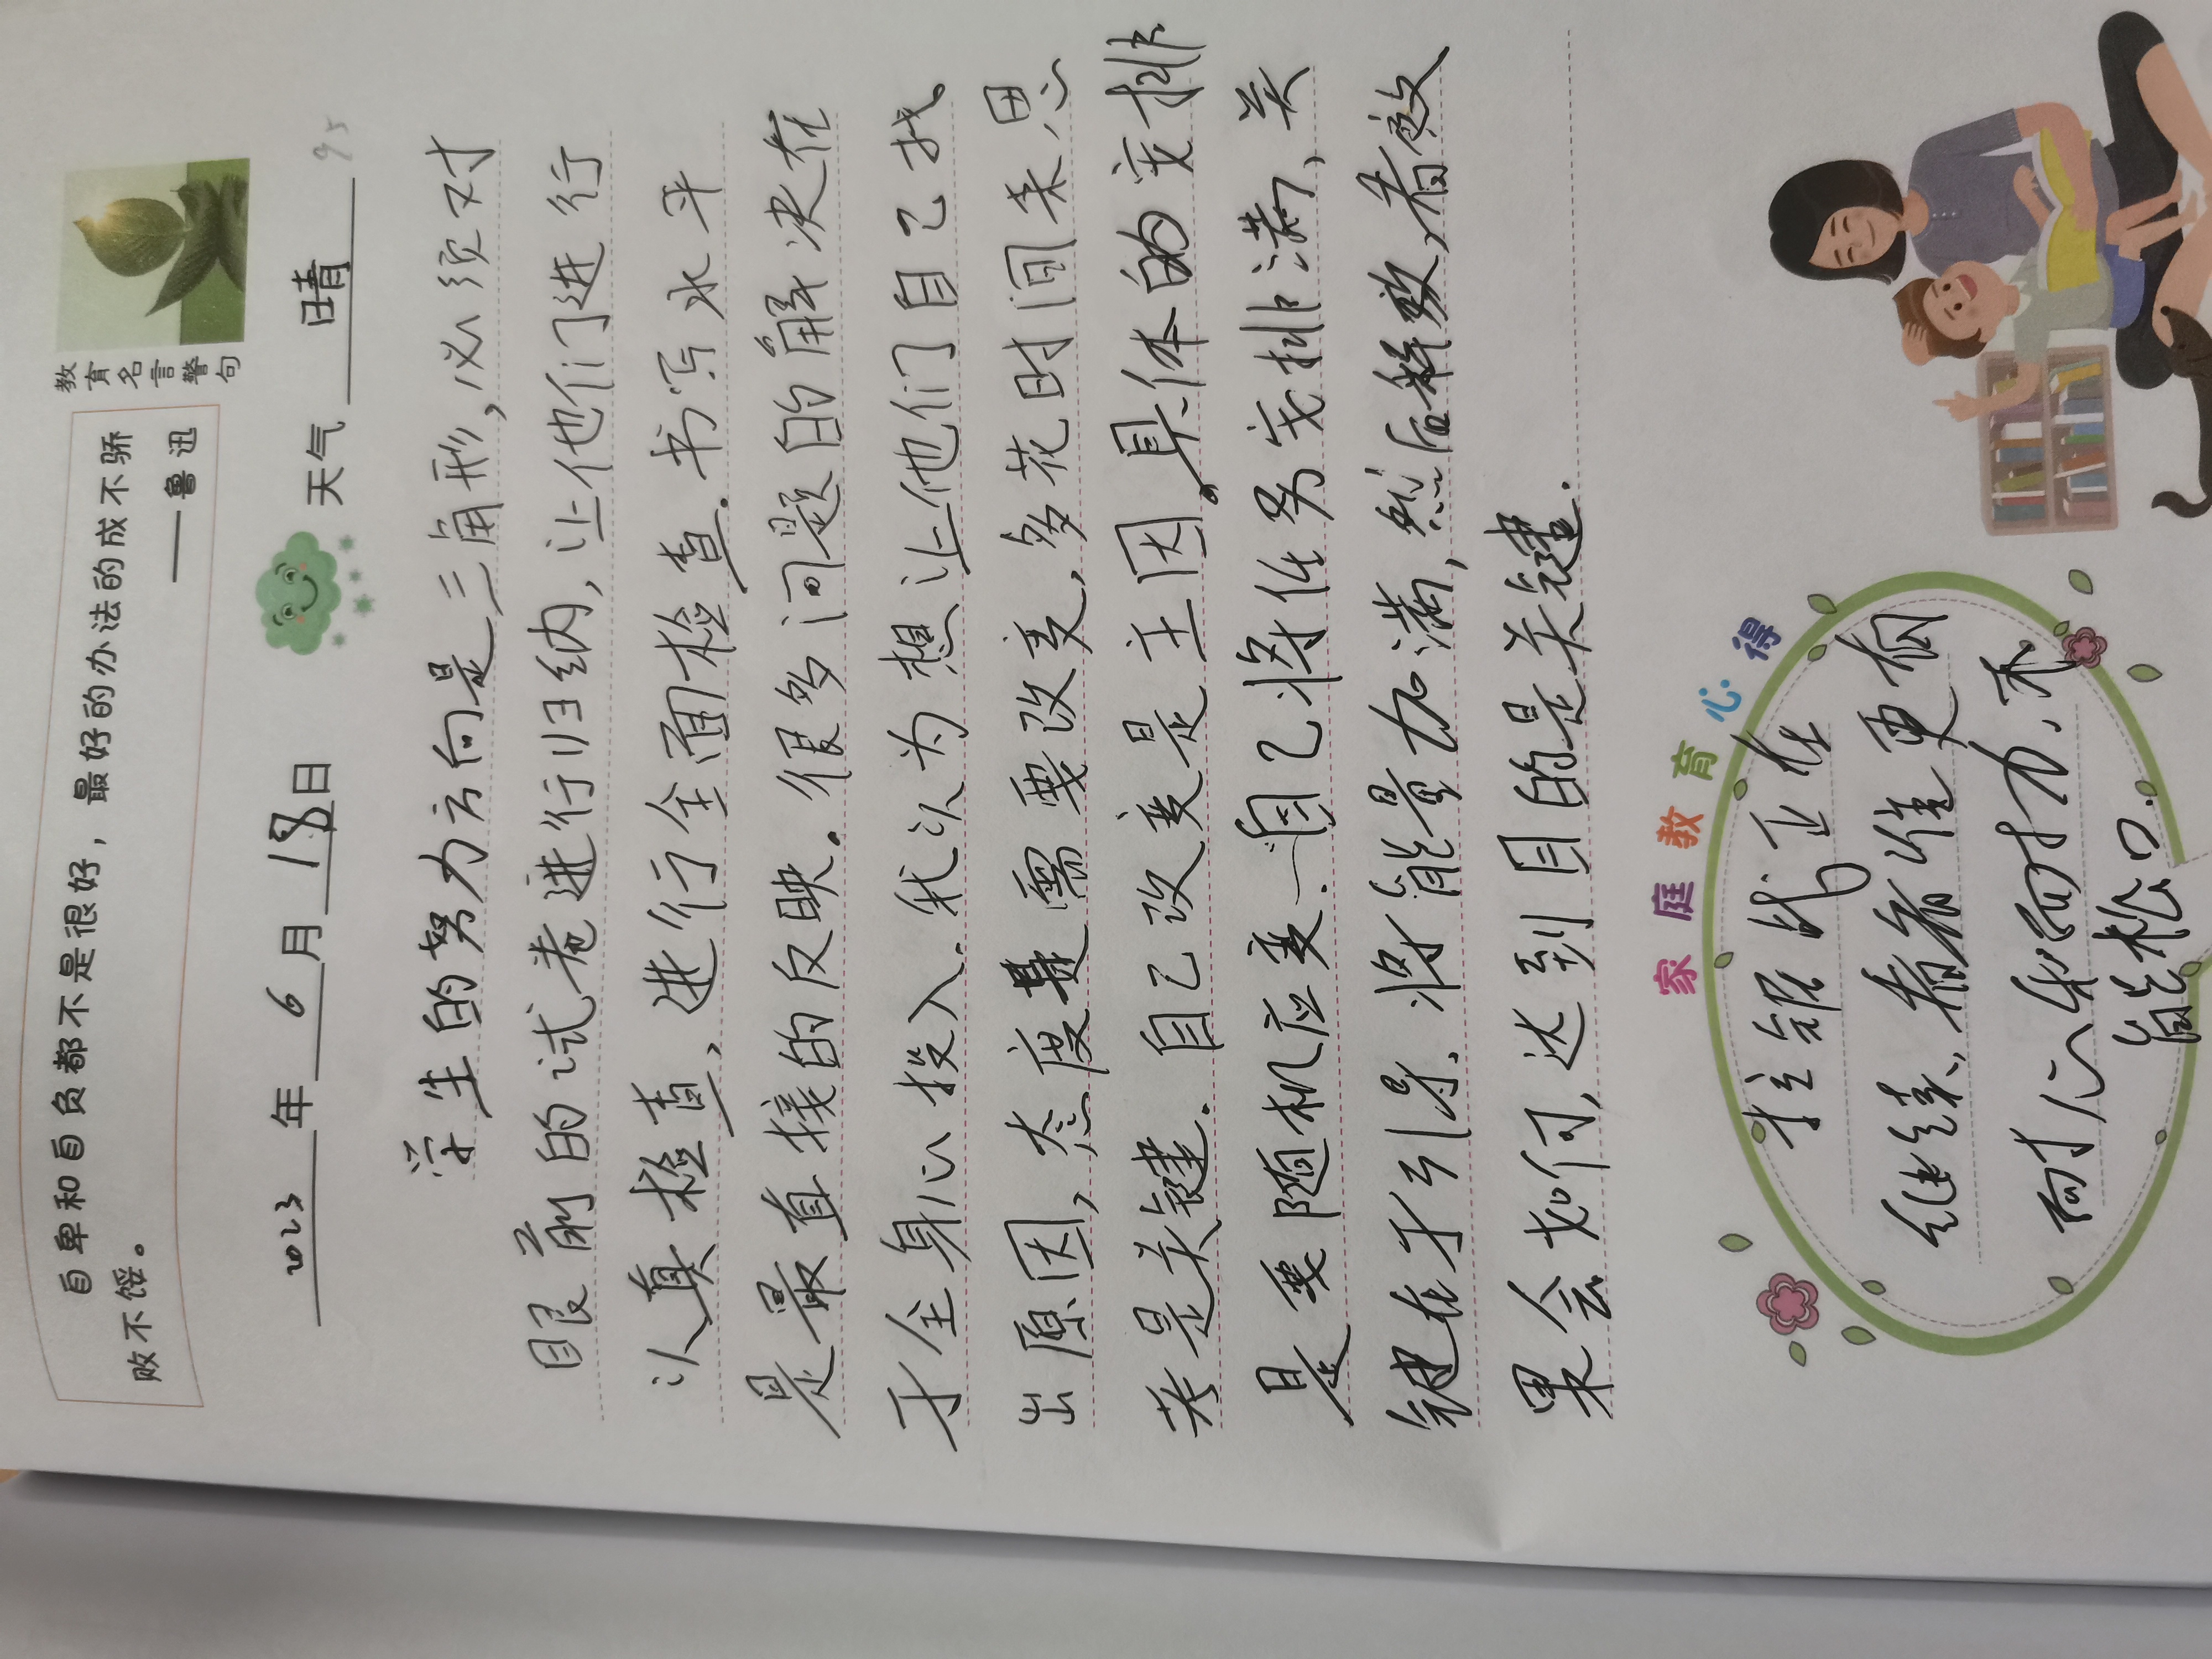 自卑和自负都不是很好，最好的办法的成不骄
败不馁。
——鲁迅
教育名言警句
2023年6月18日 天气 晴
95
学生的努力方向是三角形,必须对
眼前的试卷进行归纳,让他们进行
认真检查,进行全面检查.书写水平
是最直接的反映.很多问题的解决在
于全身心投入.我认为想让他们自己找
出原因,态度是需要改变,多花时间来思
考是关键.自己改变是主因.具体的安排
是要随机应变.自己将任务安排满、关
键在于引导.将能量加满,然后释放,看效
果会如何,达到目的是关键.
家庭教育心得
拉锯战正在
继续,看看谁更有
耐心和耐力,不
能松口.